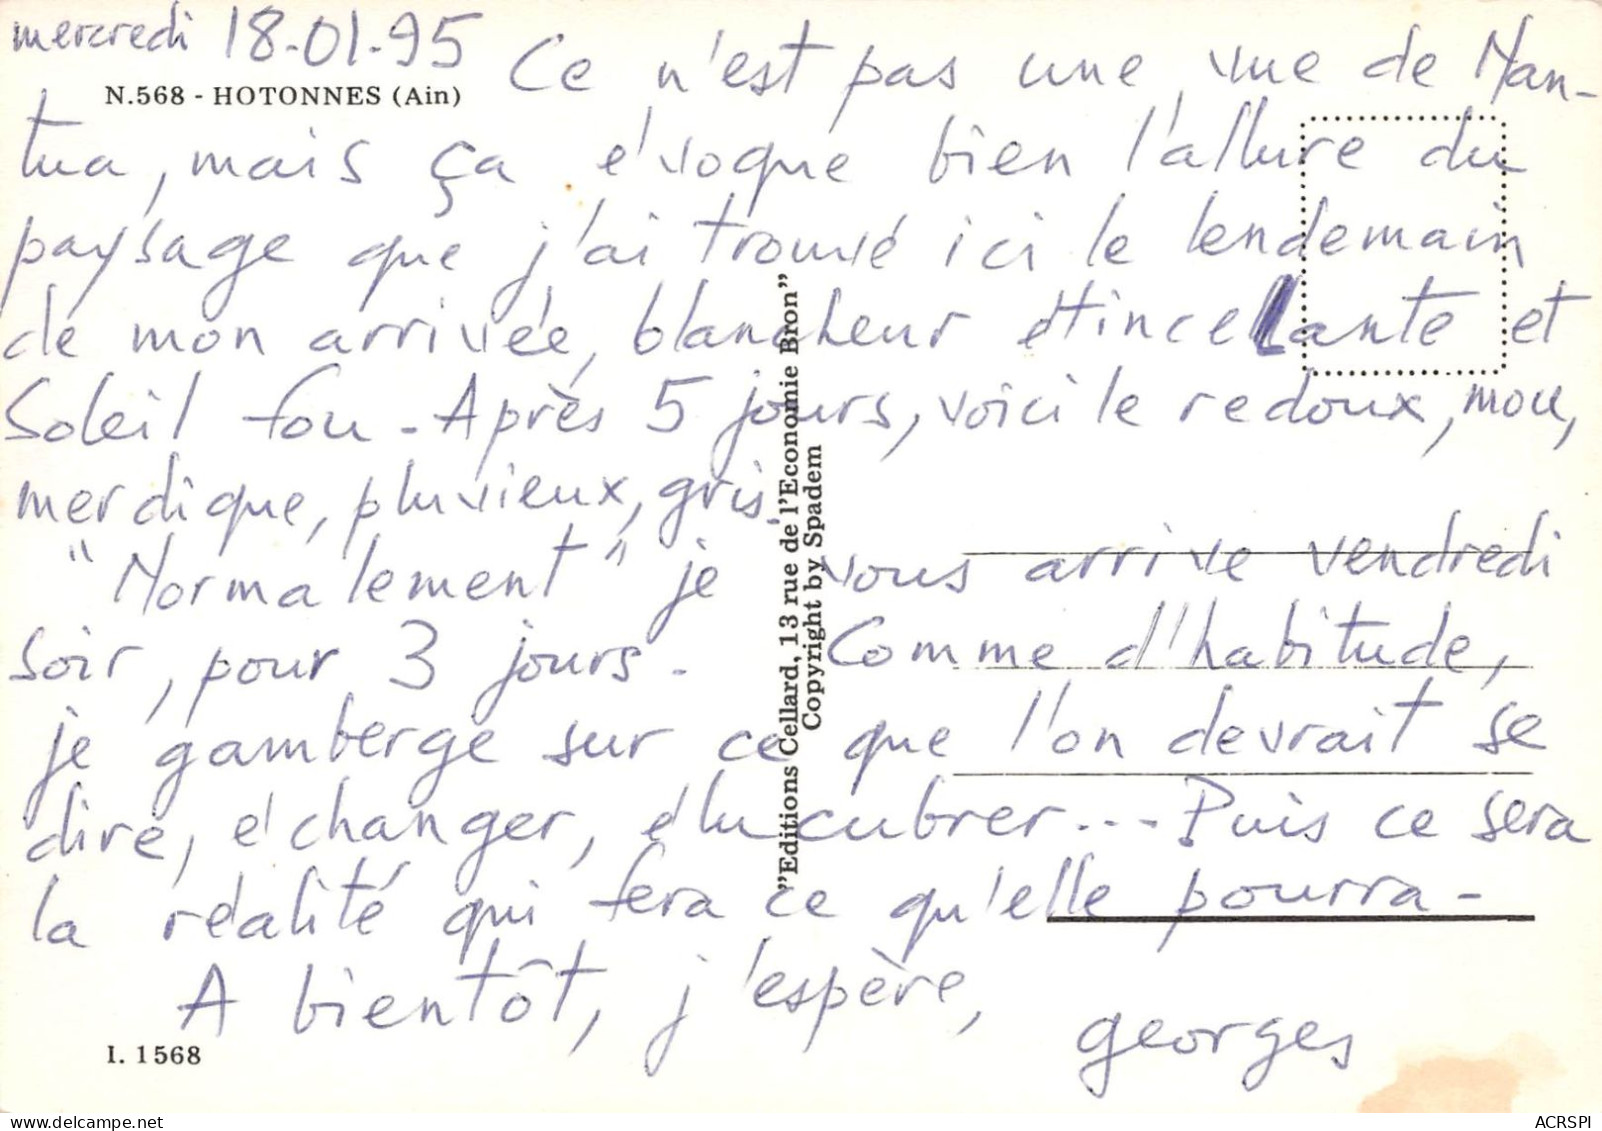 mercredi 18-01-95
N.568 - HOTONNES (Ain)
Ce n'est pas une vue de Man-
tua, mais ça évoque bien l'allure du
paysage que j'ai trouvé ici le lendemain
de mon arrivée, blancheur étincelante et
Soleil fou - Après 5 jours, voici le redoux, mou,
merdique, pluvieux, gris.
"Normalement" je vous arrive vendredi
soir, pour 3 jours. Comme d'habitude,
je gamberge sur ce que l'on devrait se
dire, échanger, élucubrer... Puis ce sera
la réalité qui fera ce qu'elle pourra -
A bientôt, j'espère,
georges
I. 1568
"Editions Cellard, 13 rue de l'Economie Bron"
Copyright by Spadem
ACRSPI